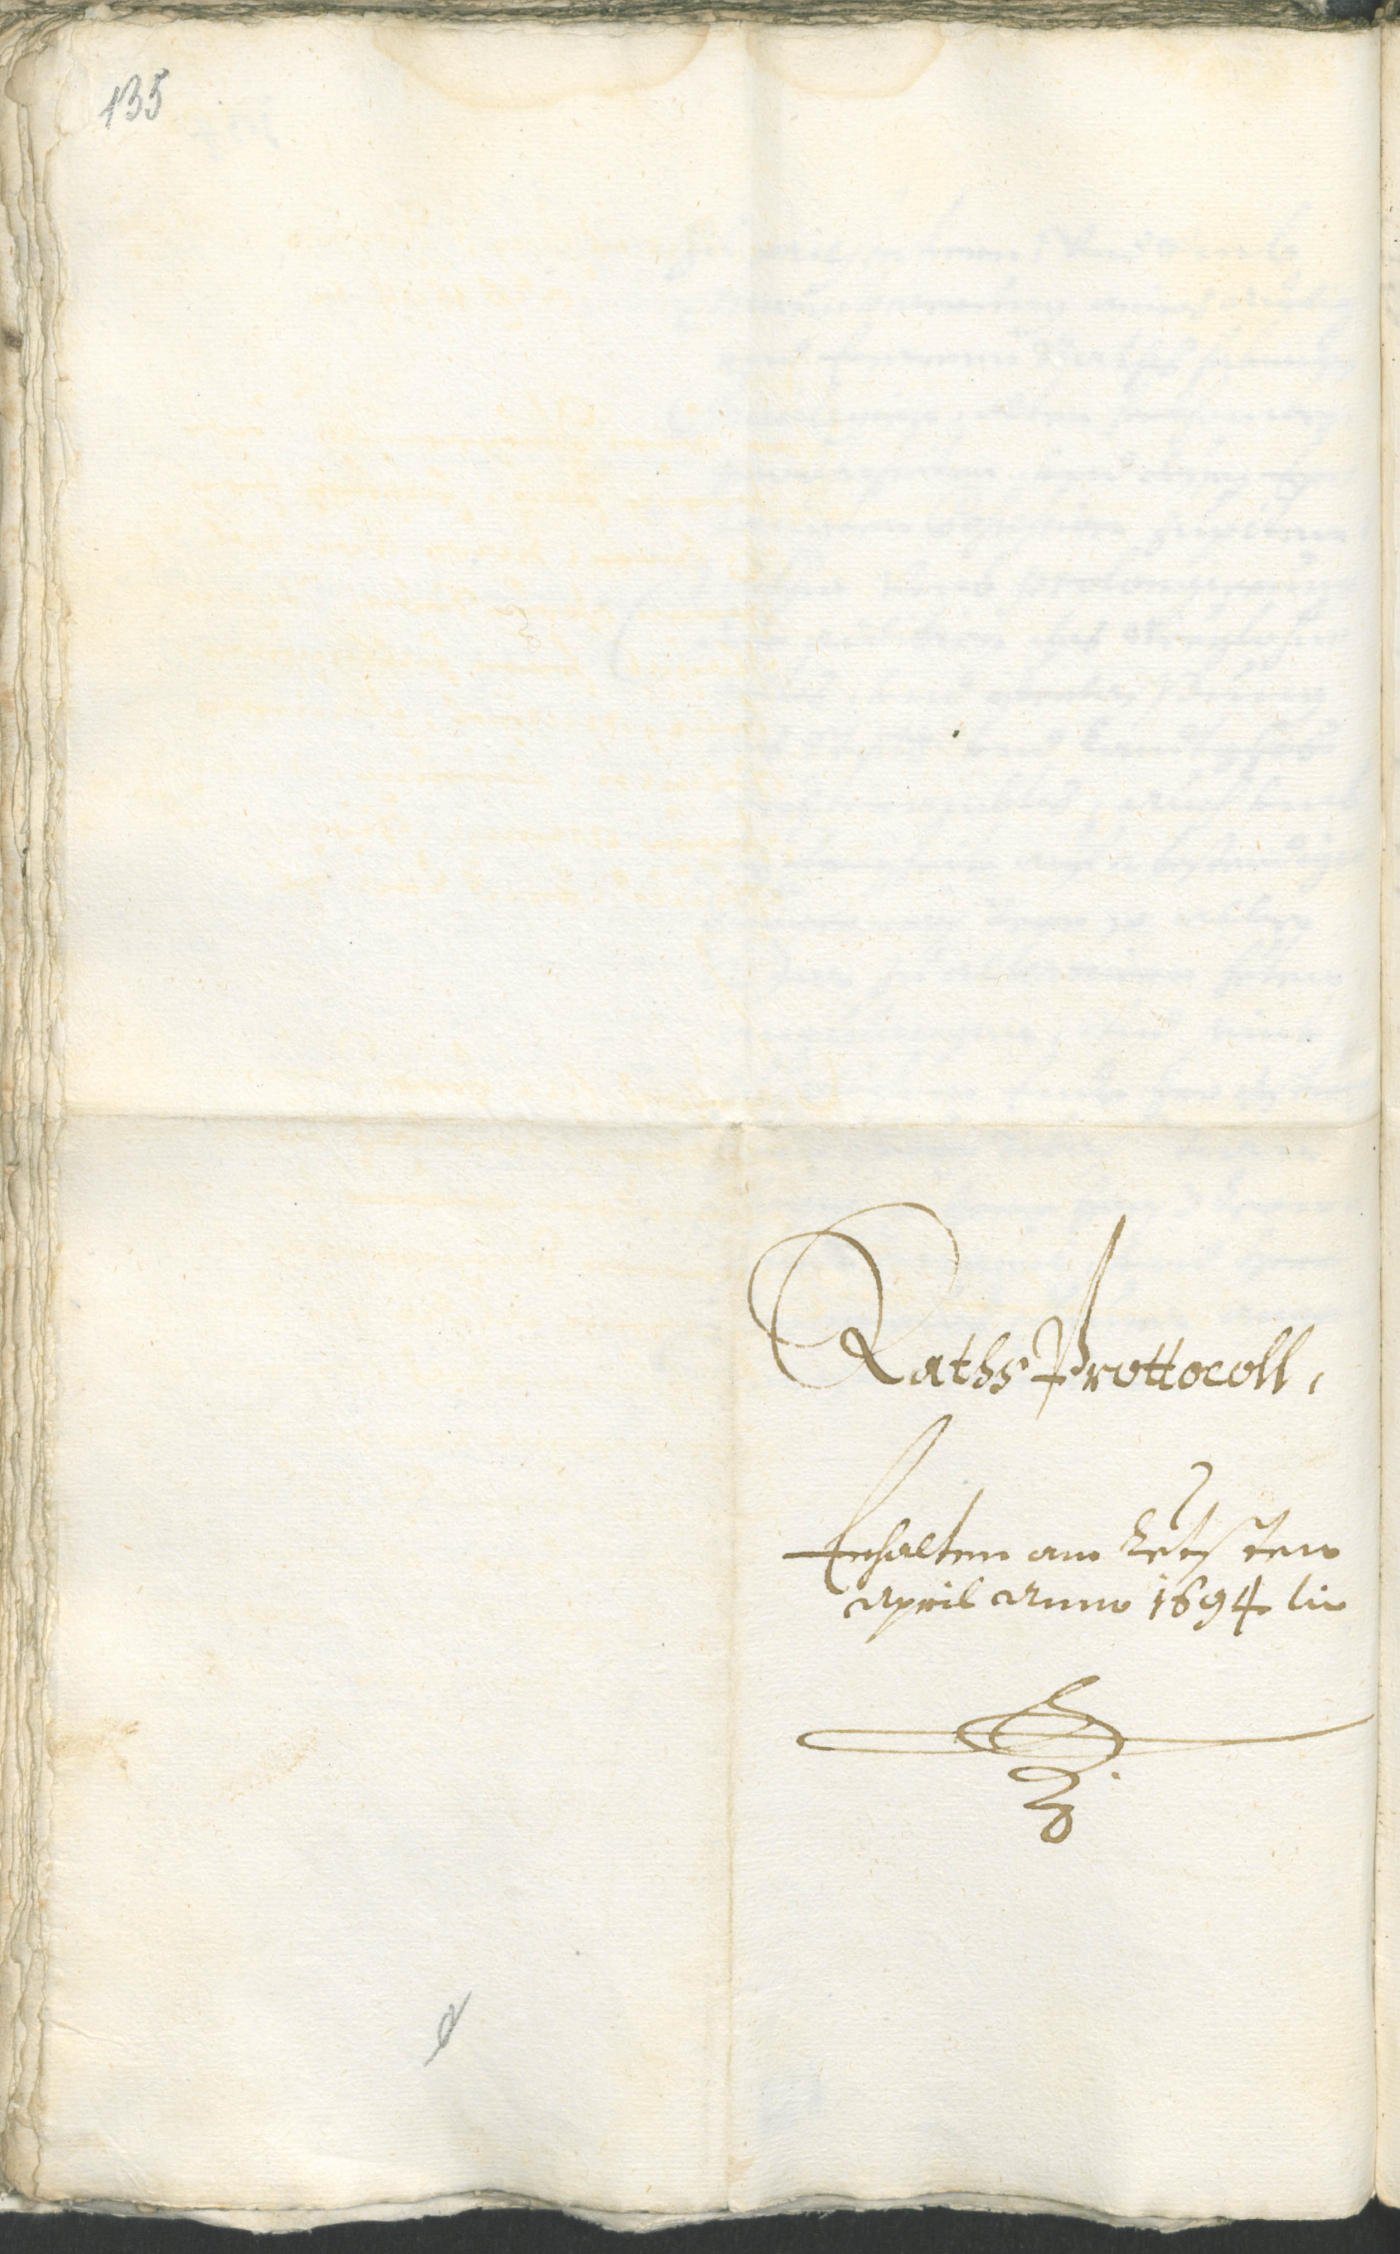 135
Raths Prottocoll,
Enhalten am Letsten
April Anno 1694